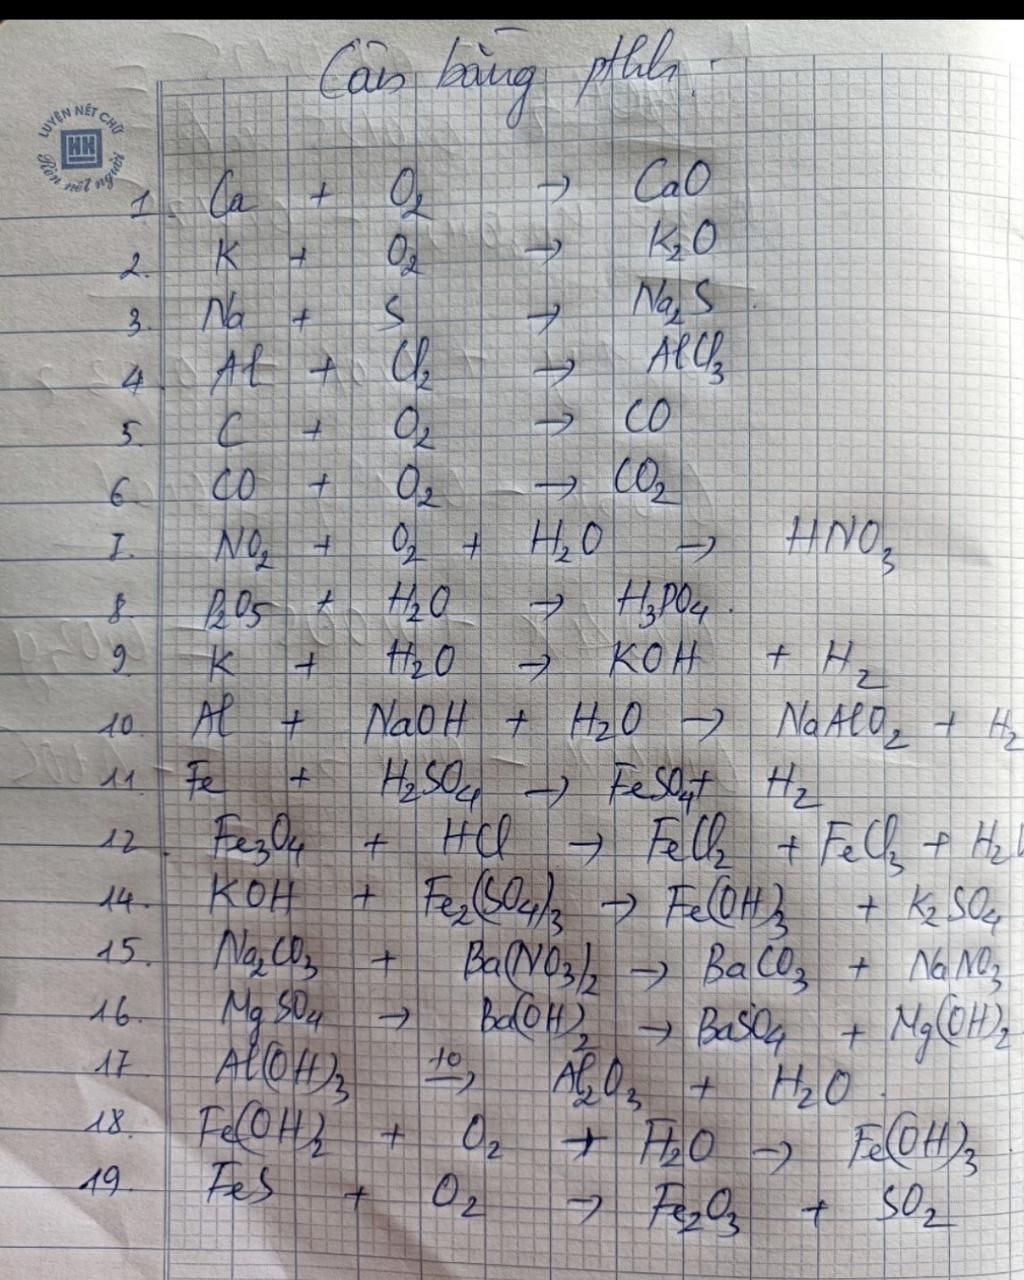 Cân bằng pthh.
LUYỆN NẾT CHỮ
HH
Rèn nết người
1. Ca + O₂ → CaO
2. K + O₂ → K₂O
3. Na + S → Na₂S.
4. Al + Cl₂ → AlCl₃
5. C + O₂ → CO
6. CO + O₂ → CO₂
7. NO₂ + O₂ + H₂O → HNO₃
8. P₂O₅ + H₂O → H₃PO₄.
9. K + H₂O → KOH + H₂
10. Al + NaOH + H₂O → NaAlO₂ + H₂
11. Fe + H₂SO₄ → FeSO₄ + H₂
12. Fe₃O₄ + HCl → FeCl₂ + FeCl₃ + H₂
14. KOH + Fe₂(SO₄)₃ → Fe(OH)₃ + K₂SO₄
15. Na₂CO₃ + Ba(NO₃)₂ → BaCO₃ + NaNO₃
16. MgSO₄ → Ba(OH)₂ → BaSO₄ + Mg(OH)₂
17 Al(OH)₃ t° → Al₂O₃ + H₂O.
18. Fe(OH)₂ + O₂ + H₂O → Fe(OH)₃.
19. FeS + O₂ → Fe₂O₃ + SO₂